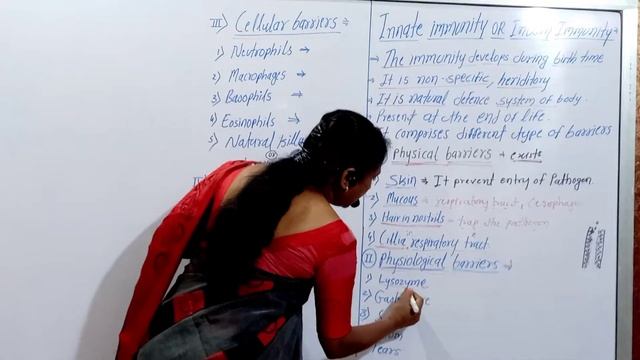 III) Cellular barriers :-
1) Neutrophils →
2) Macrophages →
3) Basophils →
4) Eosinophils →
5) Natural killer
Innate immunity OR Immunity
→ The immunity develops during birth time
→ It is non-specific, heriditory
→ It is natural defence system of body.
→ Present at the end of life.
It comprises different type of barriers
Physical barriers →
Skin → It prevent entry of Pathogen.
2) Mucous → respiratory tract,
3) Hair in nostrils → trap the pathogen
4) Cillia in respiratory tract.
II Physiological barriers →
1) Lysozyme
2)
3)
Tears